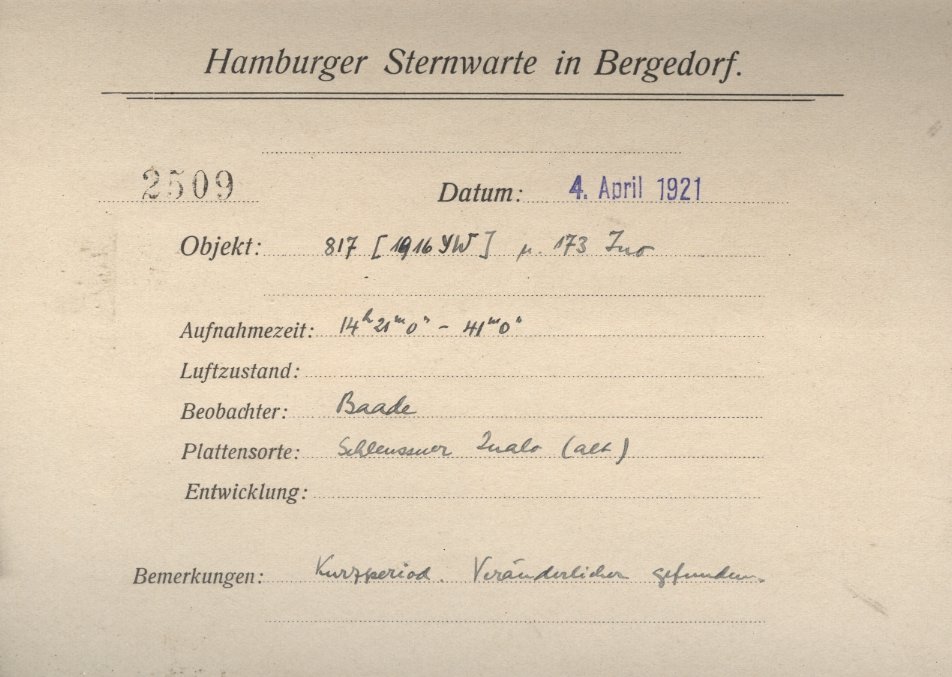 Hamburger Sternwarte in Bergedorf.
2509 Datum: 4. April 1921
Objekt: 817 [1916 YW] u. 173 Ino
Aufnahmezeit: 14h 21m 0s - 41m 0s
Luftzustand:
Beobachter: Baade
Plattensorte: Schleussner (alt)
Entwicklung:
Bemerkungen: Kurzperiod. Veränderlicher gefunden.